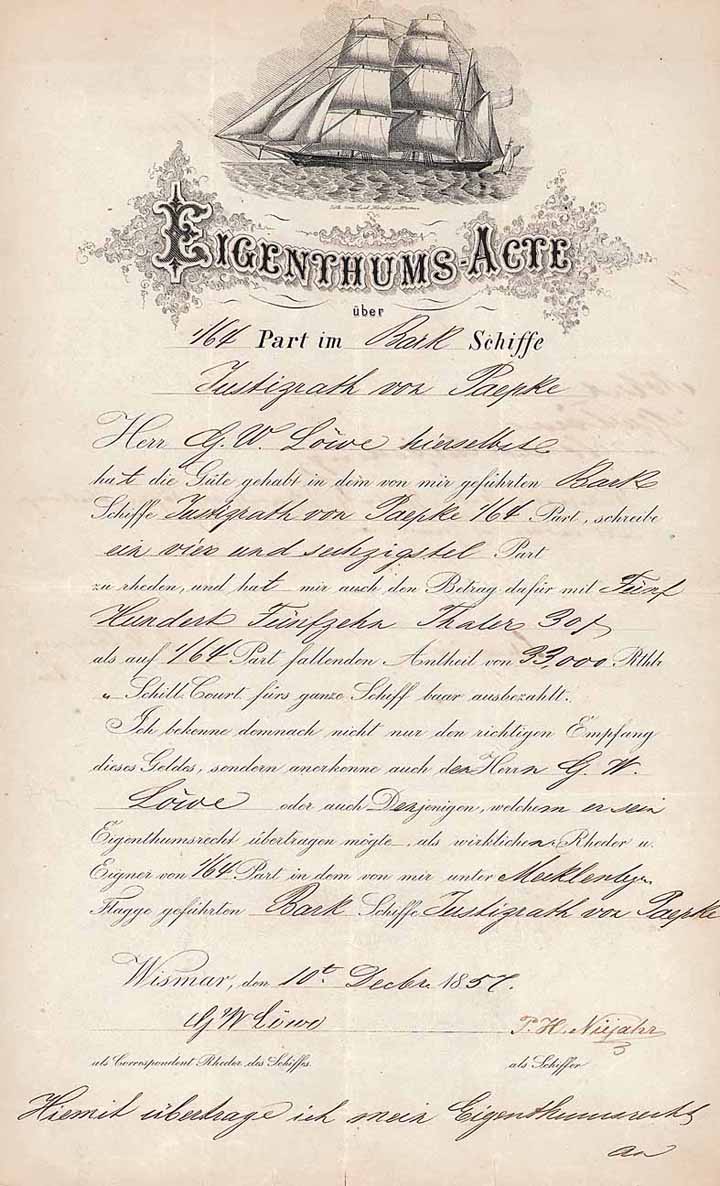 EIGENTHUMS-ACTE
über
1/64 Part im Bark Schiffe
Justizrath von Paepke
Herr G. W. Löwe hierselbst
hat die Güte gehabt in dem von mir geführten Bark
Schiffe Justizrath von Paepke 1/64 Part, schreibe
ein vier und sechzigstel Part
zu rheden, und hat mir auch den Betrag dafür mit Fünf
Hundert Fünfzehn Thaler 30
als auf 1/64 Part fallenden Antheil von 33,000 Rthlr
" Schill. Court. fürs ganze Schiff baar ausbezahlt.
Ich bekenne demnach nicht nur den richtigen Empfang
dieses Geldes, sondern anerkenne auch den Herrn G. W.
Löwe oder auch Denjenigen, welchem er sein
Eigenthumsrecht übertragen mögte, als wirklichen Rheder u.
Eigner von 1/64 Part in dem von mir unter Mecklenbgr.
Flagge geführten Bark Schiffe Justizrath von Paepke
Wismar, den 10t. Decbr. 1857.
G W Löwe P. H. Niejahr
als Correspondent Rheder des Schiffes. als Schiffer
Hiemit übertrage ich mein Eigenthumsrecht
an